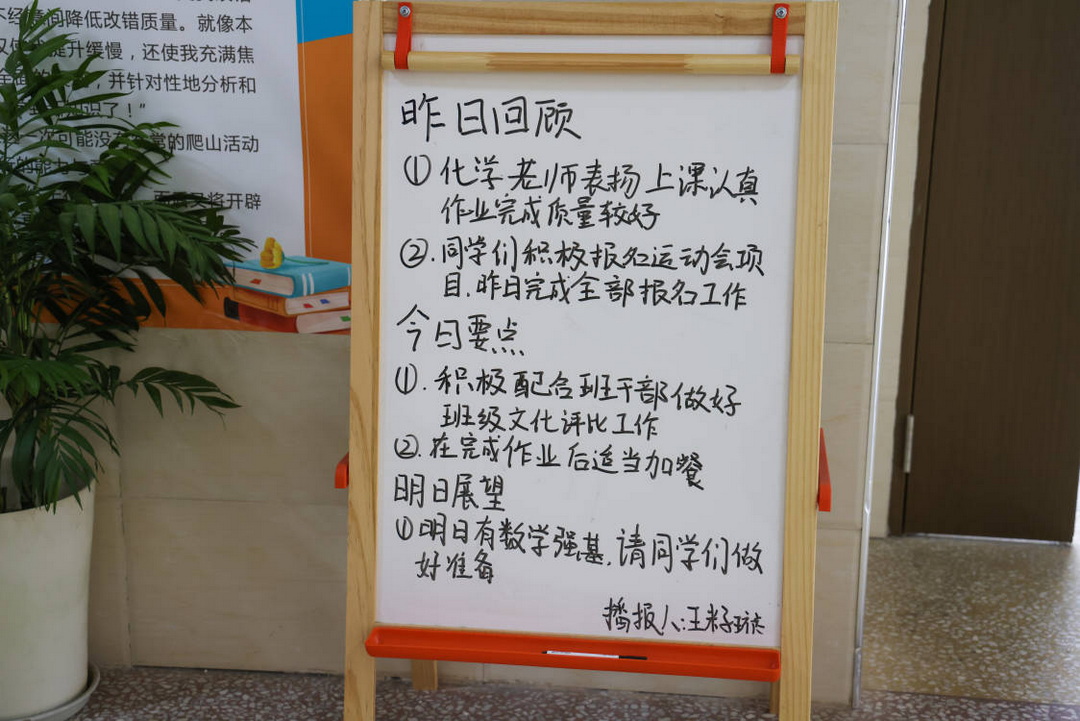 不经意间降低改错质量。就像本
升缓慢，还使我充满焦
，并针对性地分析和
识了！“
一次可能没
常的爬山活动
将开辟
昨日回顾
① 化学老师表扬上课认真
作业完成质量较好
②.同学们积极报名运动会项
目.昨日完成全部报名工作
今日要点
①.积极配合班干部做好
班级文化评比工作
②.在完成作业后适当加餐
明日展望
①明日有数学强基.请同学们做
好准备
播报人:王